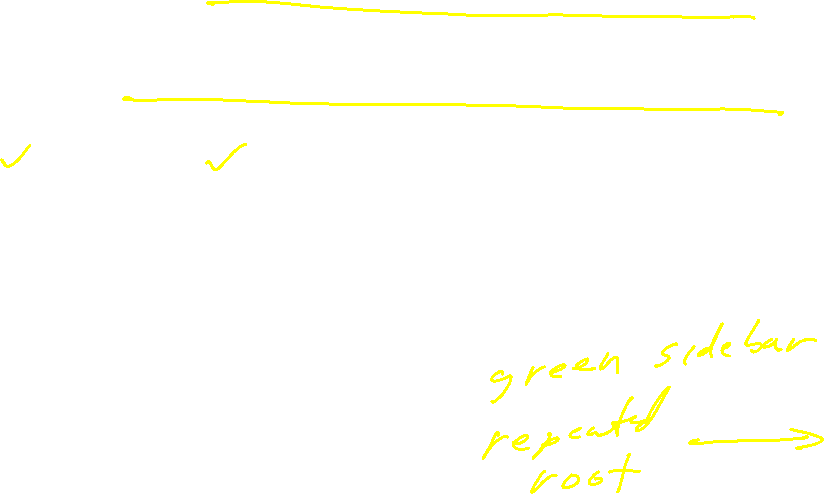 green sidebar
repeated
root